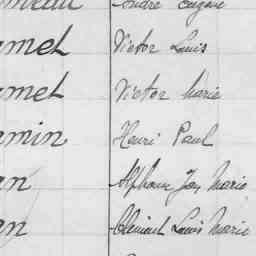 amel Victor Louis
amel Victor Marie
amin Henri Paul
an Alphonse Marie
an Clément Louis Marie